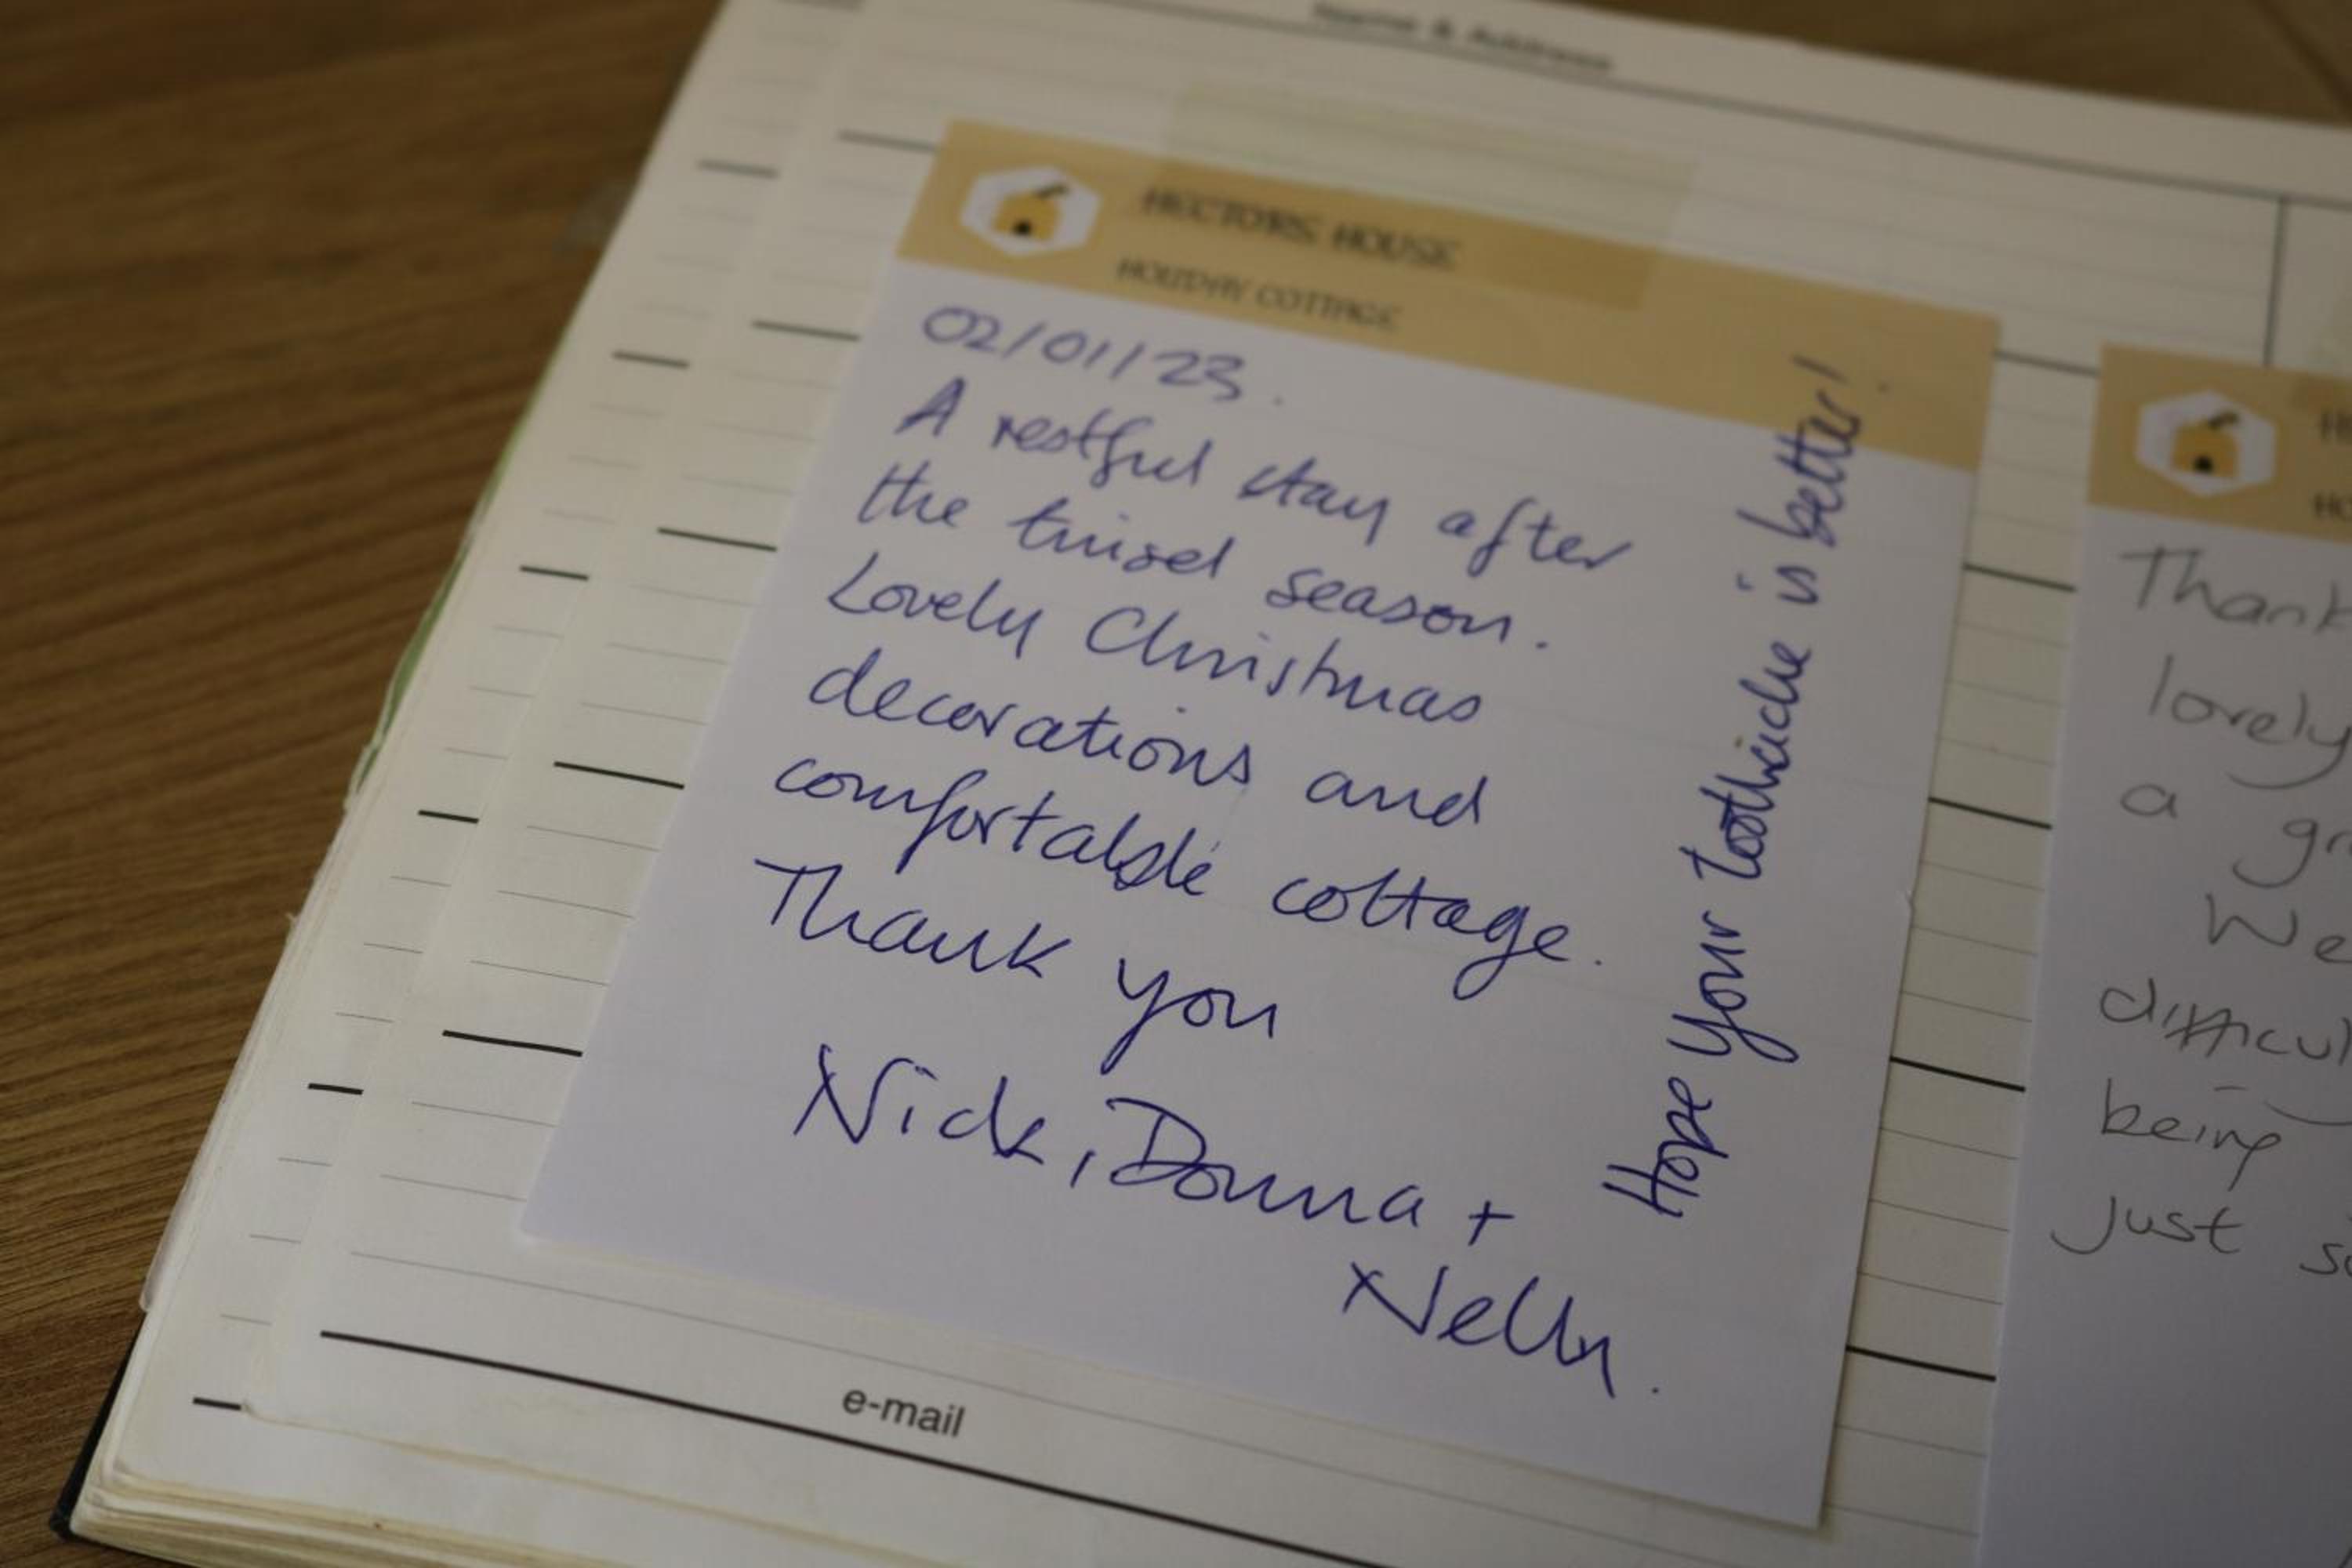 Name & Address
HECTORS HOUSE
HOLIDAY COTTAGE
02/01/23.
A restful stay after
the tinsel season.
Lovely Christmas
decorations and
comfortable cottage.
Thank you
Nick, Donna +
Nelly.
Hope your toothache is better!
e-mail
Thank
lovely
a
We
being
just